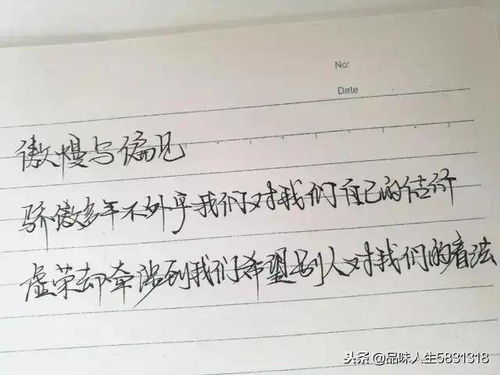 No:
Date
傲慢与偏见
骄傲多年不外乎我们对我们自己的估价
虚荣却牵涉到我们希望别人对我们的看法
头条@品味人生5831318